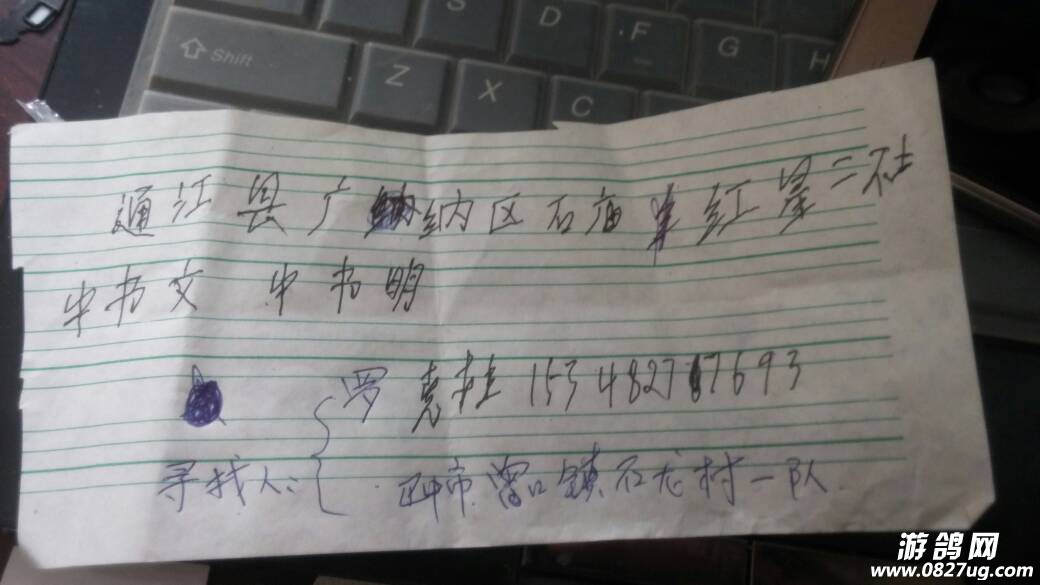 Shift
S D F G H
Z X C
通江县广纳区石庙红星二社
书文 书明
罗 桂 15348277693
寻找人:
巴中市曾口镇石龙村一队
游鸽网
www.0827ug.com